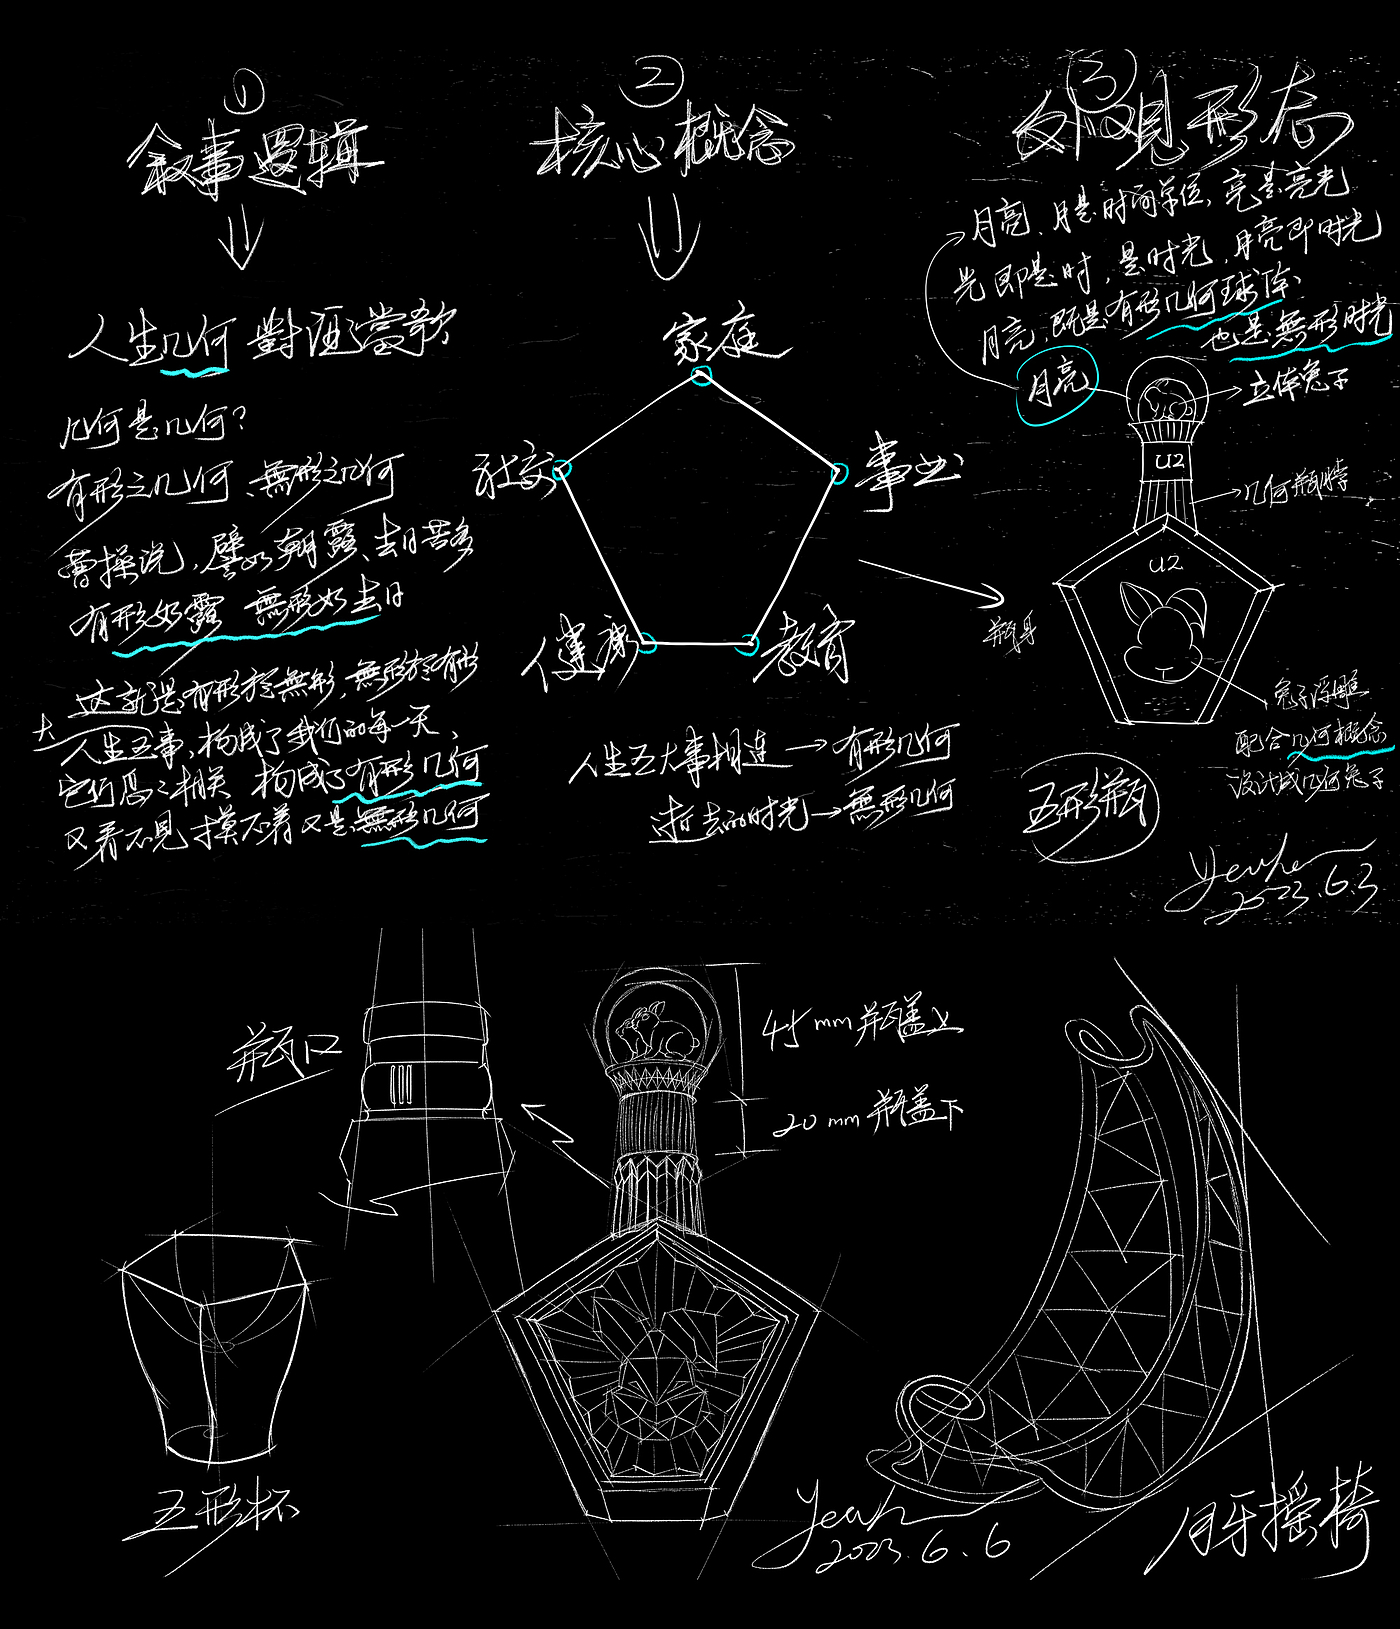 1
叙事逻辑
人生几何 對酒當歌
几何是几何?
有形之几何、無形之几何
曹操说,譬如朝露、去日苦多
有形如露 無形如去日
这就是有形於無形,無形於有形
大
人生五事,构成了我们的每一天、
它们息息相关 构成了有形几何
又看不見 摸不着 又是無形几何
2
核心概念
家庭
社交
事业
健康
教育
人生五大事相连→有形几何
逝去的时光→無形几何
3
外观形态
月亮、月是时间单位、亮是亮光
光即是时,是时光,月亮即时光
月亮,既是有形几何球体、
也是無形时光
月亮
立体兔子
U2
几何瓶
U2
瓶身
兔子浮雕
配合几何概念
设计成几何兔子
五形瓶
Yeah
2023.6.3
瓶口
45mm 瓶盖上
20mm 瓶盖下
五形杯
Yeah
2023.6.6
月牙摇椅